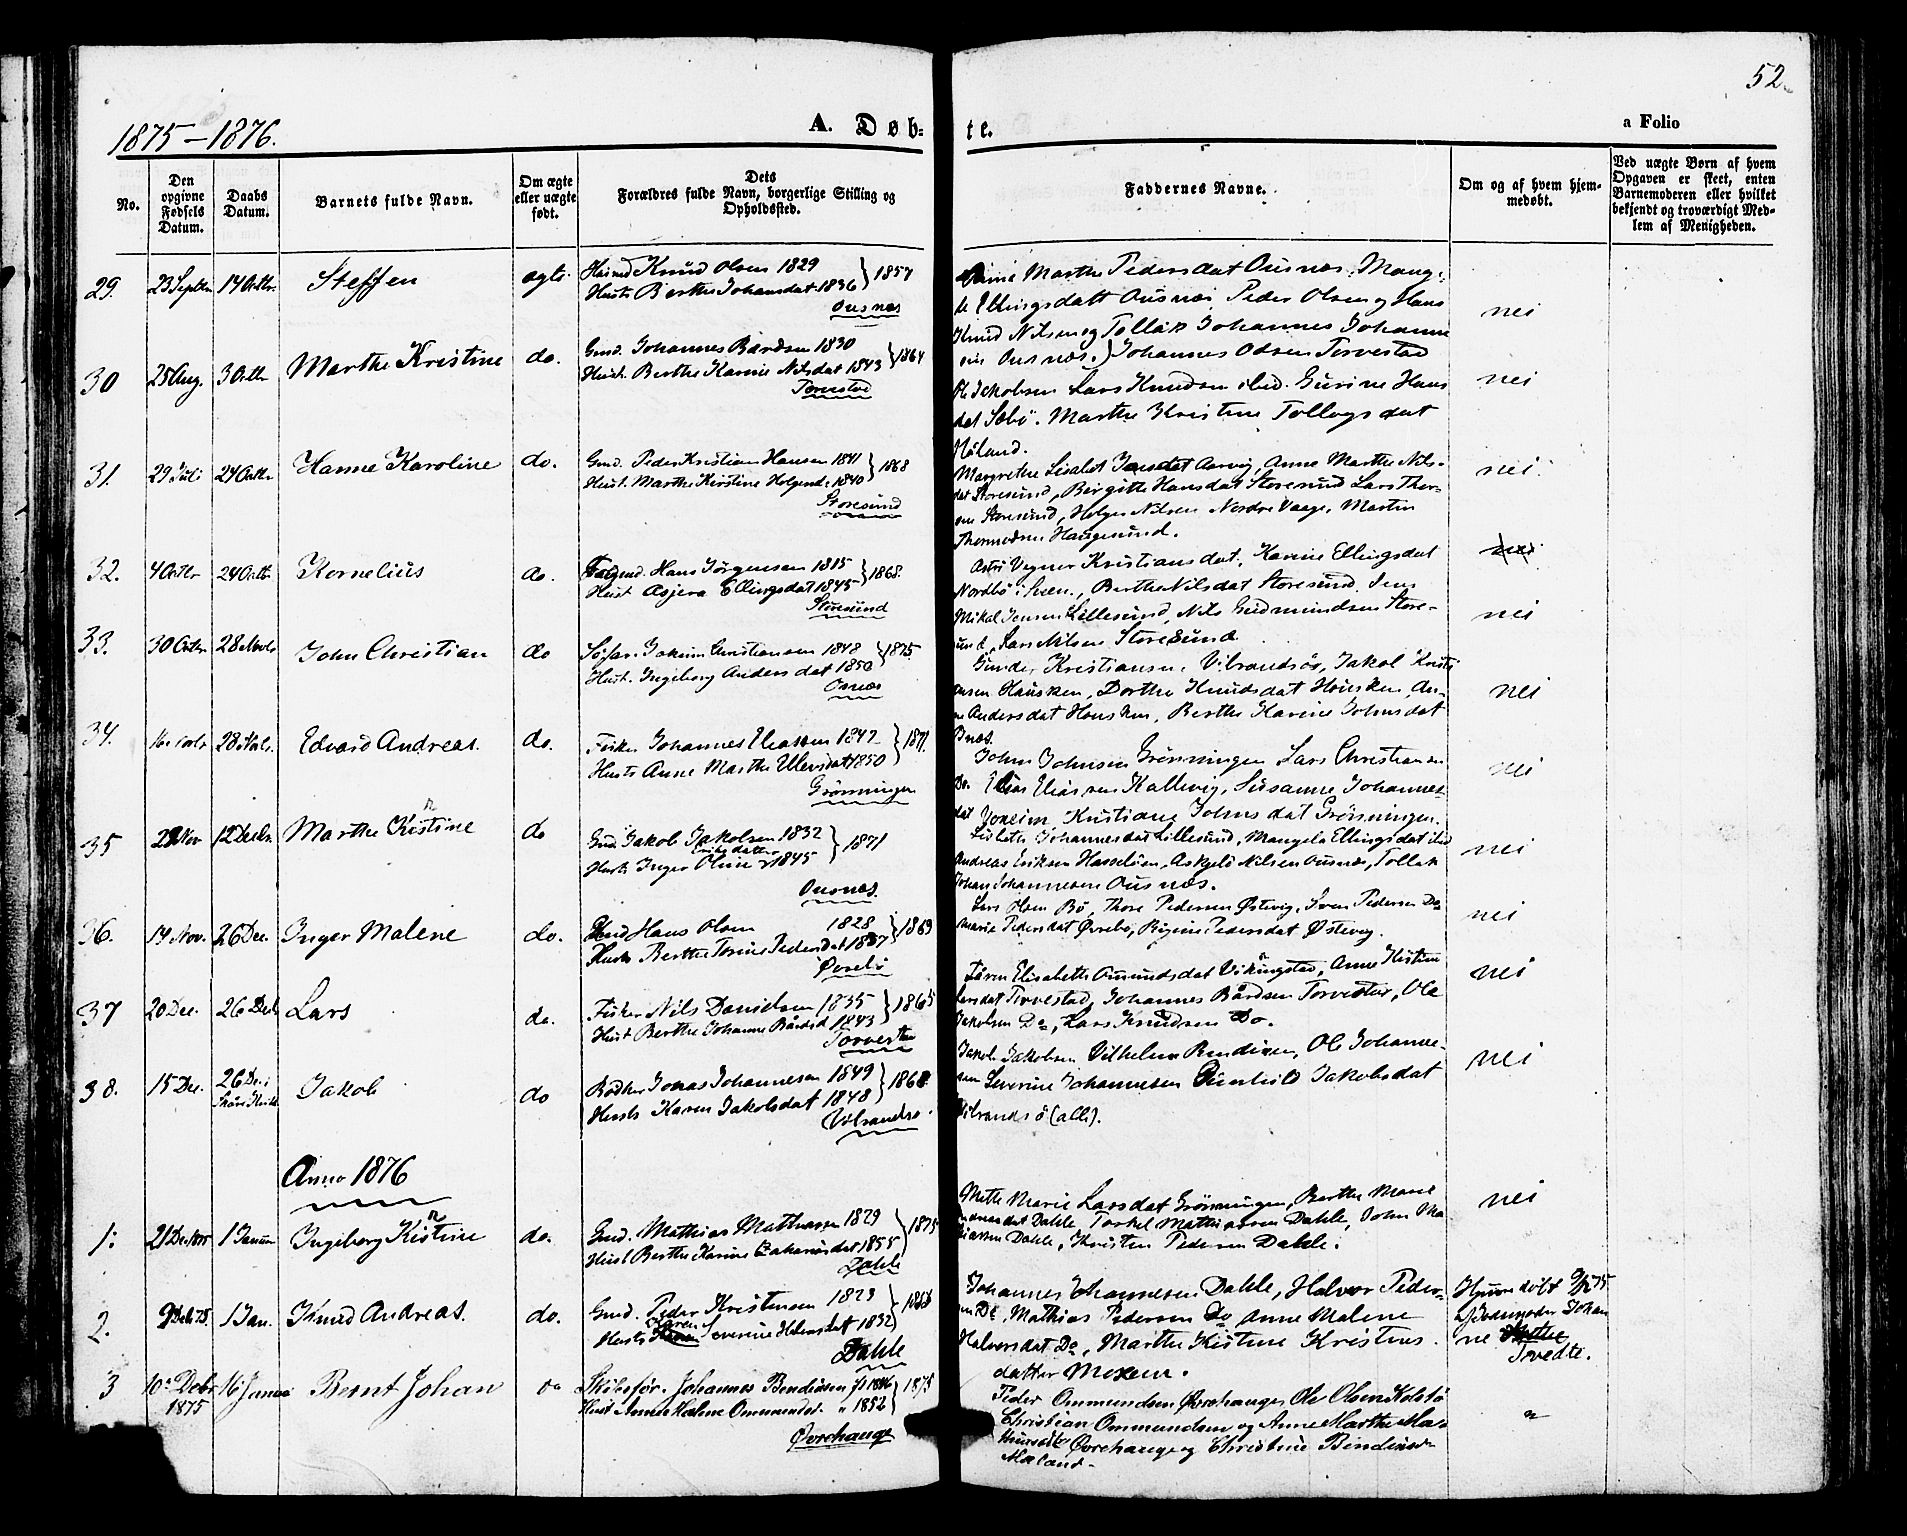 52.
1875-1876.
A. Døb-
te.
a Folio
No.
Den opgivne Fødsels Datum.
Daabs Datum.
Barnets fulde Navn.
Om ægte eller uægte født.
Dets Forældres fulde Navn, borgerlige Stilling og Opholdssted.
Faddernes Navne.
Om og af hvem hjemmedøbt.
Ved uægte Børn af hvem Opgaven er skeet, enten Barnemoderen eller hvilket bekjendt og troværdigt Medlem af Menigheden.
29. 23 Septbr 14 Octbr. Steffen ægte. Knud Olsen 1829 } 1857
Hust. Berthe Johansdat 1836
Ousnæs
Marthe Pedersdat Ousnæs, Mang-
te Ellingsdatt Ousnæs, Peder Olsen og Hans
Knud Nilsen og Tollak Johannes Johanne
sen Ousnæs.) nei
30 25 Aug. 3 Octbr Marthe Kristine do. Gmd. Johannes Bårdsen 1830 } 1864
Hust. Berthe Karine Nilsdat 1843
Torvestad
Johannes Odsen Torvestad
Ole Jakobsen Lars Knudsen ibid. Gurine Hans
dat Sæbö. Marthe Kristine Tollagsdat
Höland. nei
31. 29 Juli 24 Octbr Hanne Karoline do. Gmd. Peder Kristian Hansen 1841 } 1868
Hust. Marthe Kirstine Holgersd. 1840
Storesund
Margrethe Lisabet Jansdat Aarvig, Anne Marthe Nils-
dat Storesund, Birgitte Hansdat Storesund Lars Thor-
sen Storesund, Holger Nilsen Nordre Vaage, Martin
Thormodsen Haugesund. nei
32. 4 Octbr 24 Octbr Kornelius do. Hans Jörgensen 1815 } 1868.
Hust Asjera Ellingsdat 1845
Storesund
Kristiansdat, Karine Ellingsdat
Nordbö i Sveen, Berthe Nilsdat Storesund. Jens
Mikal Jensen Lillesund, Nils Gudmundsen Store-
sund, Lars Nilsen Storesund nei
33. 30 Octbr. 28 Novbr John Christian do Joakim Christiansen 1848 } 1875
Hust. Ingeborg Andersdat 1850
Osnæs
Gunder Kristiansen Vibrandsö, Jakob Kristi
ansen Hausken, Dorthe Knudsdat Hausken, An-
ne Andersdat Hausken, Berthe Karine Johnsdat nei
34. 28 Novbr. Edvard Andreas. do. Fisker Johannes Eliassen 1847 } 1871.
Hust. Anne Marthe 1850
Grönningen
John Johnsen Grönningen Lars Christiansen
Do. Elias Eliassen Kallevig, Susanne Johannes-
dat Kristiane Johnsdat Grönningen. nei
35 Nov 12 Decbr. Marthe Kristine do Gmd. Jakob Jakobsen 1832 } 1871
Hust. Inger Oline Eriksdatter 1845
Ousnæs.
Lisbeth Johannesdat Lillesund, Mangela Ellingsdat ibid
Andreas Eriksen Hasselöen, Askjeld Nilsen Ousnæs, Tollak
Johan Johannesen Ousnæs. nei
36. 19 Nov. 26 Dec. Inger Malene do. Gmd Hans Olsen 1828 } 1869
Hust. Berthe Pedersdat 1837
Övrebö
Lars Olsen Bö, Thore Pedersen Östevig, Sven Pedersen Do
Marie Pedersdat Övrebö, Pedersdat Östevig. nei
37 20 Dec. 26 Decb Lars do. Fisker Nils Danielsen 1835 } 1865
Hust Berthe Johanne Bårdsd 1843
Torvestad
Elisabeth Amundsdat Vikingstad, Anne Kristine
Larsdat Torvestad, Johannes Bårdsen Torvestad, Ole
Jakobsen Do, Lars Knudsen Do. nei
38. 15 Dec. 26 Dec. Jakob do Bödker Jonas Johannesen 1849 } 1868
Hust. Karen Jakobsdat 1848
Vibrandsö.
Jakob Jakobsen Vilhelm Bendixen, Ole Johanne-
sen Severine Johannesen Gunhild Jakobsdat
Vibrandsö (alle). nei
Anno 1876
1: 21 Dec. 1875 1 Januar Ingeborg Kristine do. Gmd. Mathias Mathiassen 1829 } 1875
Hust Berthe Karine Zakariasdat 1855
Dahle
Mette Marie Larsdat Grönningen, Berthe Marie
Dahle, Torkel Mathiassen Dahle, John Ma
thiassen Dahle, Kristen Pedersen Dahle. nei
2. 9 Decb 75. 1 Jan. Knud Andreas. do. Gmd. Peder Kristensen 1823 } 1858
Hust. Karen Severine Hansdat 1832
Dahle
Johannes Johannesen Dahle, Halvor Peder-
sen Do, Mathias Pedersen Do Anne Malene
Halvorsdat Do, Marthe Kistine Kristens
datter Moxem.
Hjemdöbt
af Jordemoder Johan
ne
Tvedte.
3 10 Decbr 1875 16 Januar Bernt Johan do Skibsför. Johannes Bendixsen 1846 } 1875
Hust Anne Malene Ommundsd. 1852
Övrehauge
Peder Ommundsen Övrehauge, Ole Olsen Kolstö
Christian Ommundsen og Anne Marthe
Övrehauge og Christine Bendixsd
Mæland.